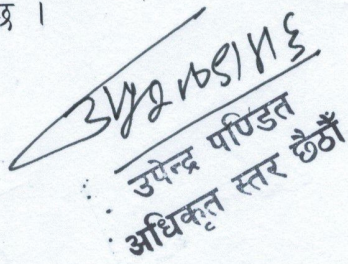 ।
उपेन्द्र पण्डित
अधिकृत स्तर छैठौँ